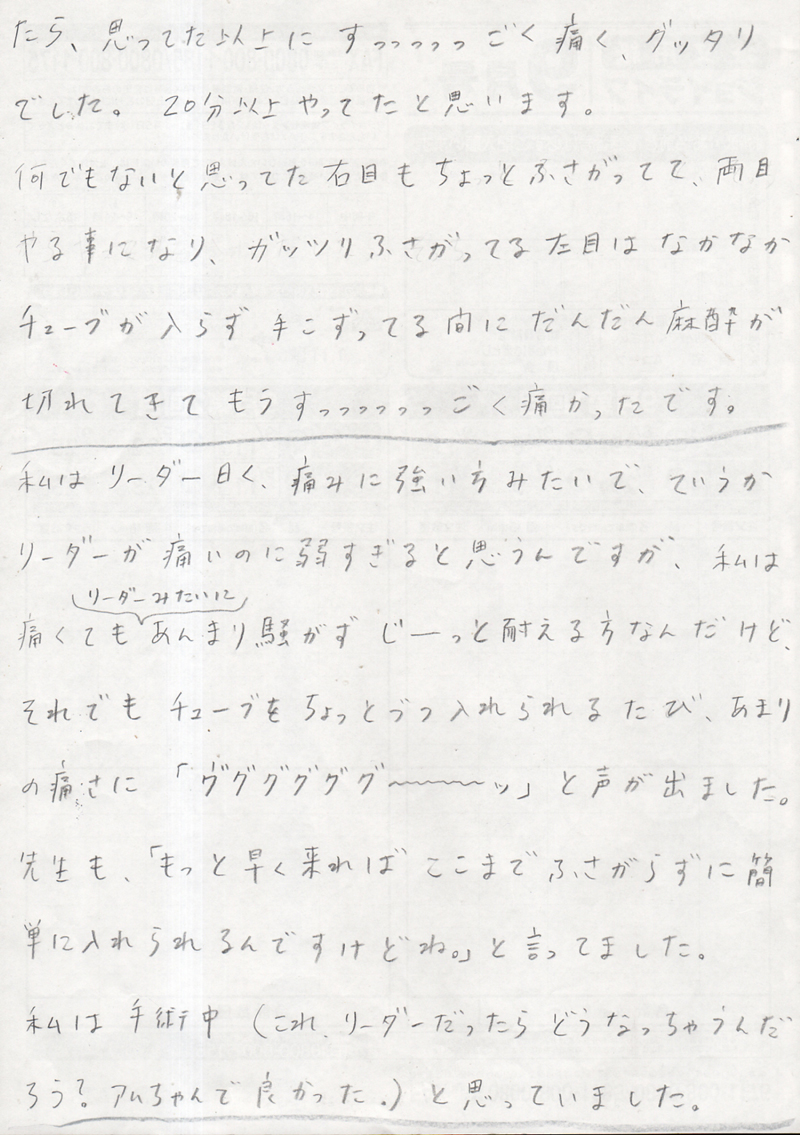 たら、思ってた以上に すっっっっっごく 痛く、グッタリ
でした。 20分以上 やってたと思います。
何でもないと思ってた右目もちょっとふさがってて、両目
やる事になり、ガッツリふさがってる左目はなかなか
チューブが入らず 手こずってる間に だんだん麻酔が
切れてきて もうすっっっっっっごく痛かったです。
私は リーダー曰く、痛みに強い方みたいで、ていうか
リーダーが痛いのに弱すぎると思うんですが、私は
リーダーみたいに
痛くてもあんまり騒がず じーっと耐える方なんだけど、
それでも チューブを ちょっとづつ入れられるたび、あまり
の痛さに 「ヴググググググ〜〜〜〜ッ」と声が出ました。
先生も、「もっと早く来れば ここまでふさがらずに簡
単に入れられるんですけどね。」と言ってました。
私は 手術中 (これ、リーダーだったら どうなっちゃうんだ
ろう? アムちゃんで良かった。)と思っていました。